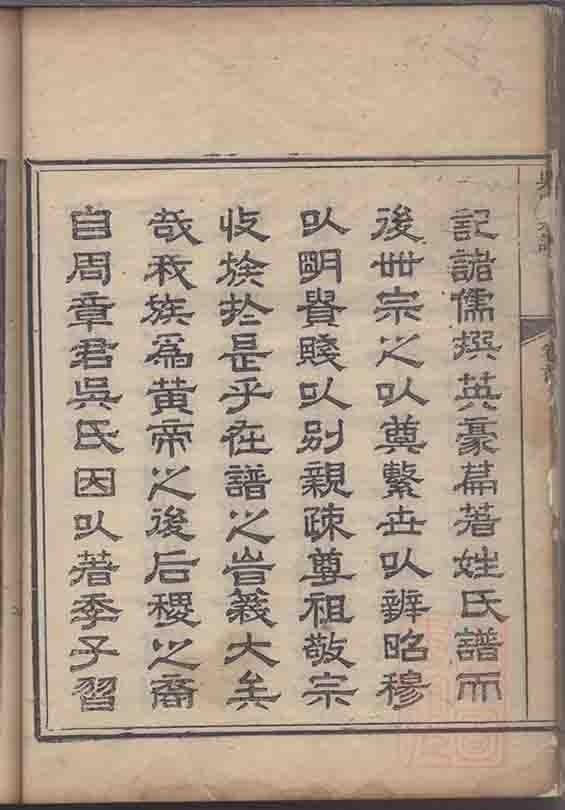 記諸儒撰英豪萹著姓氏譜而
後世宗之以奠繫世以辨昭穆
以明貴賤以別親疎尊祖敬宗
收族於是乎在譜之旨義大矣
哉我族爲黃帝之後后稷之裔
自周章君吳氏因以著季子習